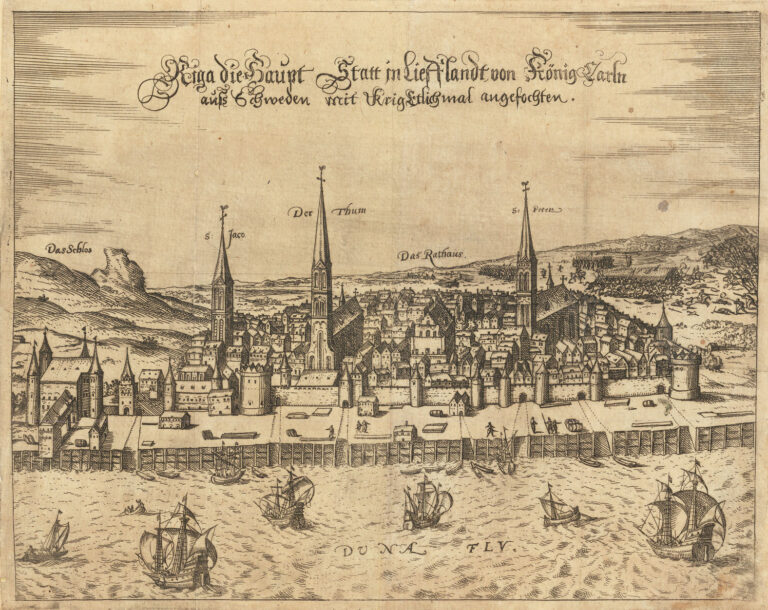 Riga die Haupt Statt in Lieff'landt von König Carln
auß Schweden mit Krig Etlichmal angefochten.
Der Thum
S. Peter
S. Jaco
Das Schlos
Das Rathaus.
DUNA FLV.